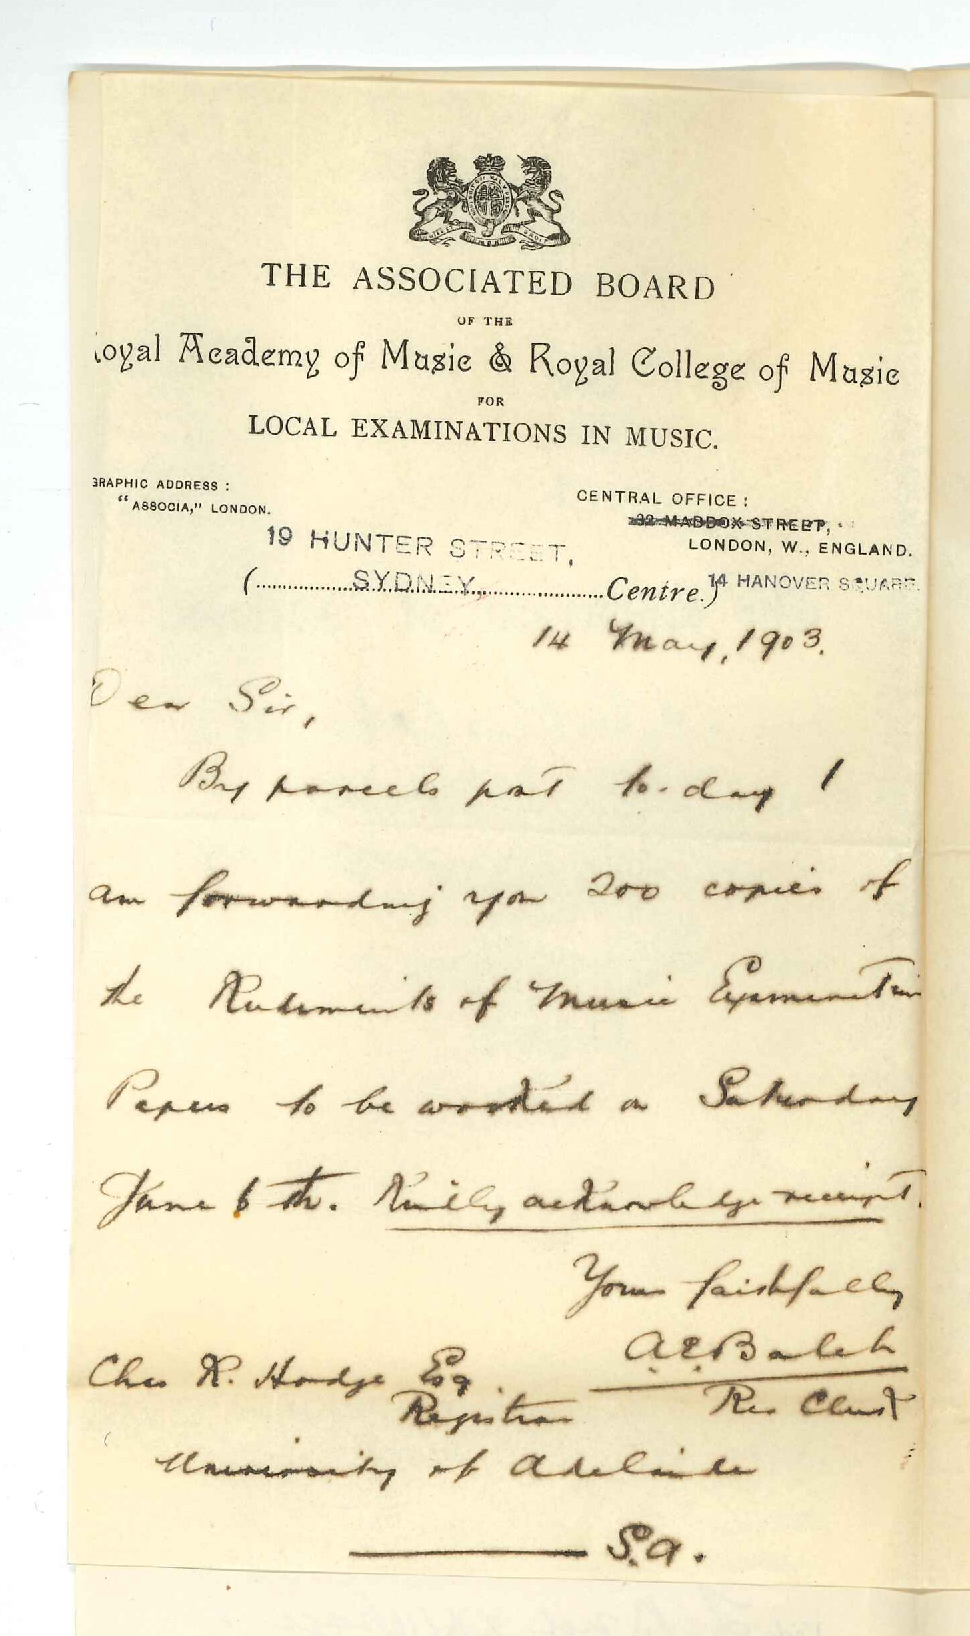 THE ASSOCIATED BOARD
OF THE
oyal Academy of Music & Royal College of Music
FOR
LOCAL EXAMINATIONS IN MUSIC.
GRAPHIC ADDRESS :
"ASSOCIA," LONDON.
CENTRAL OFFICE :
32 MADDOX STREET,
LONDON, W., ENGLAND.
19 HUNTER STREET,
(SYDNEY, Centre.) 14 HANOVER SQUARE.
14 May, 1903.
Dear Sir,
By parcels post to-day I
am forwarding you 200 copies of
the Rudiments of Music Examination
Papers to be worked on Saturday
June 6th. Kindly acknowledge receipt.
Yours faithfully
A E Balch
Chas R. Hodge Esq
Registrar
Res Clerk
University of Adelaide
S.A.